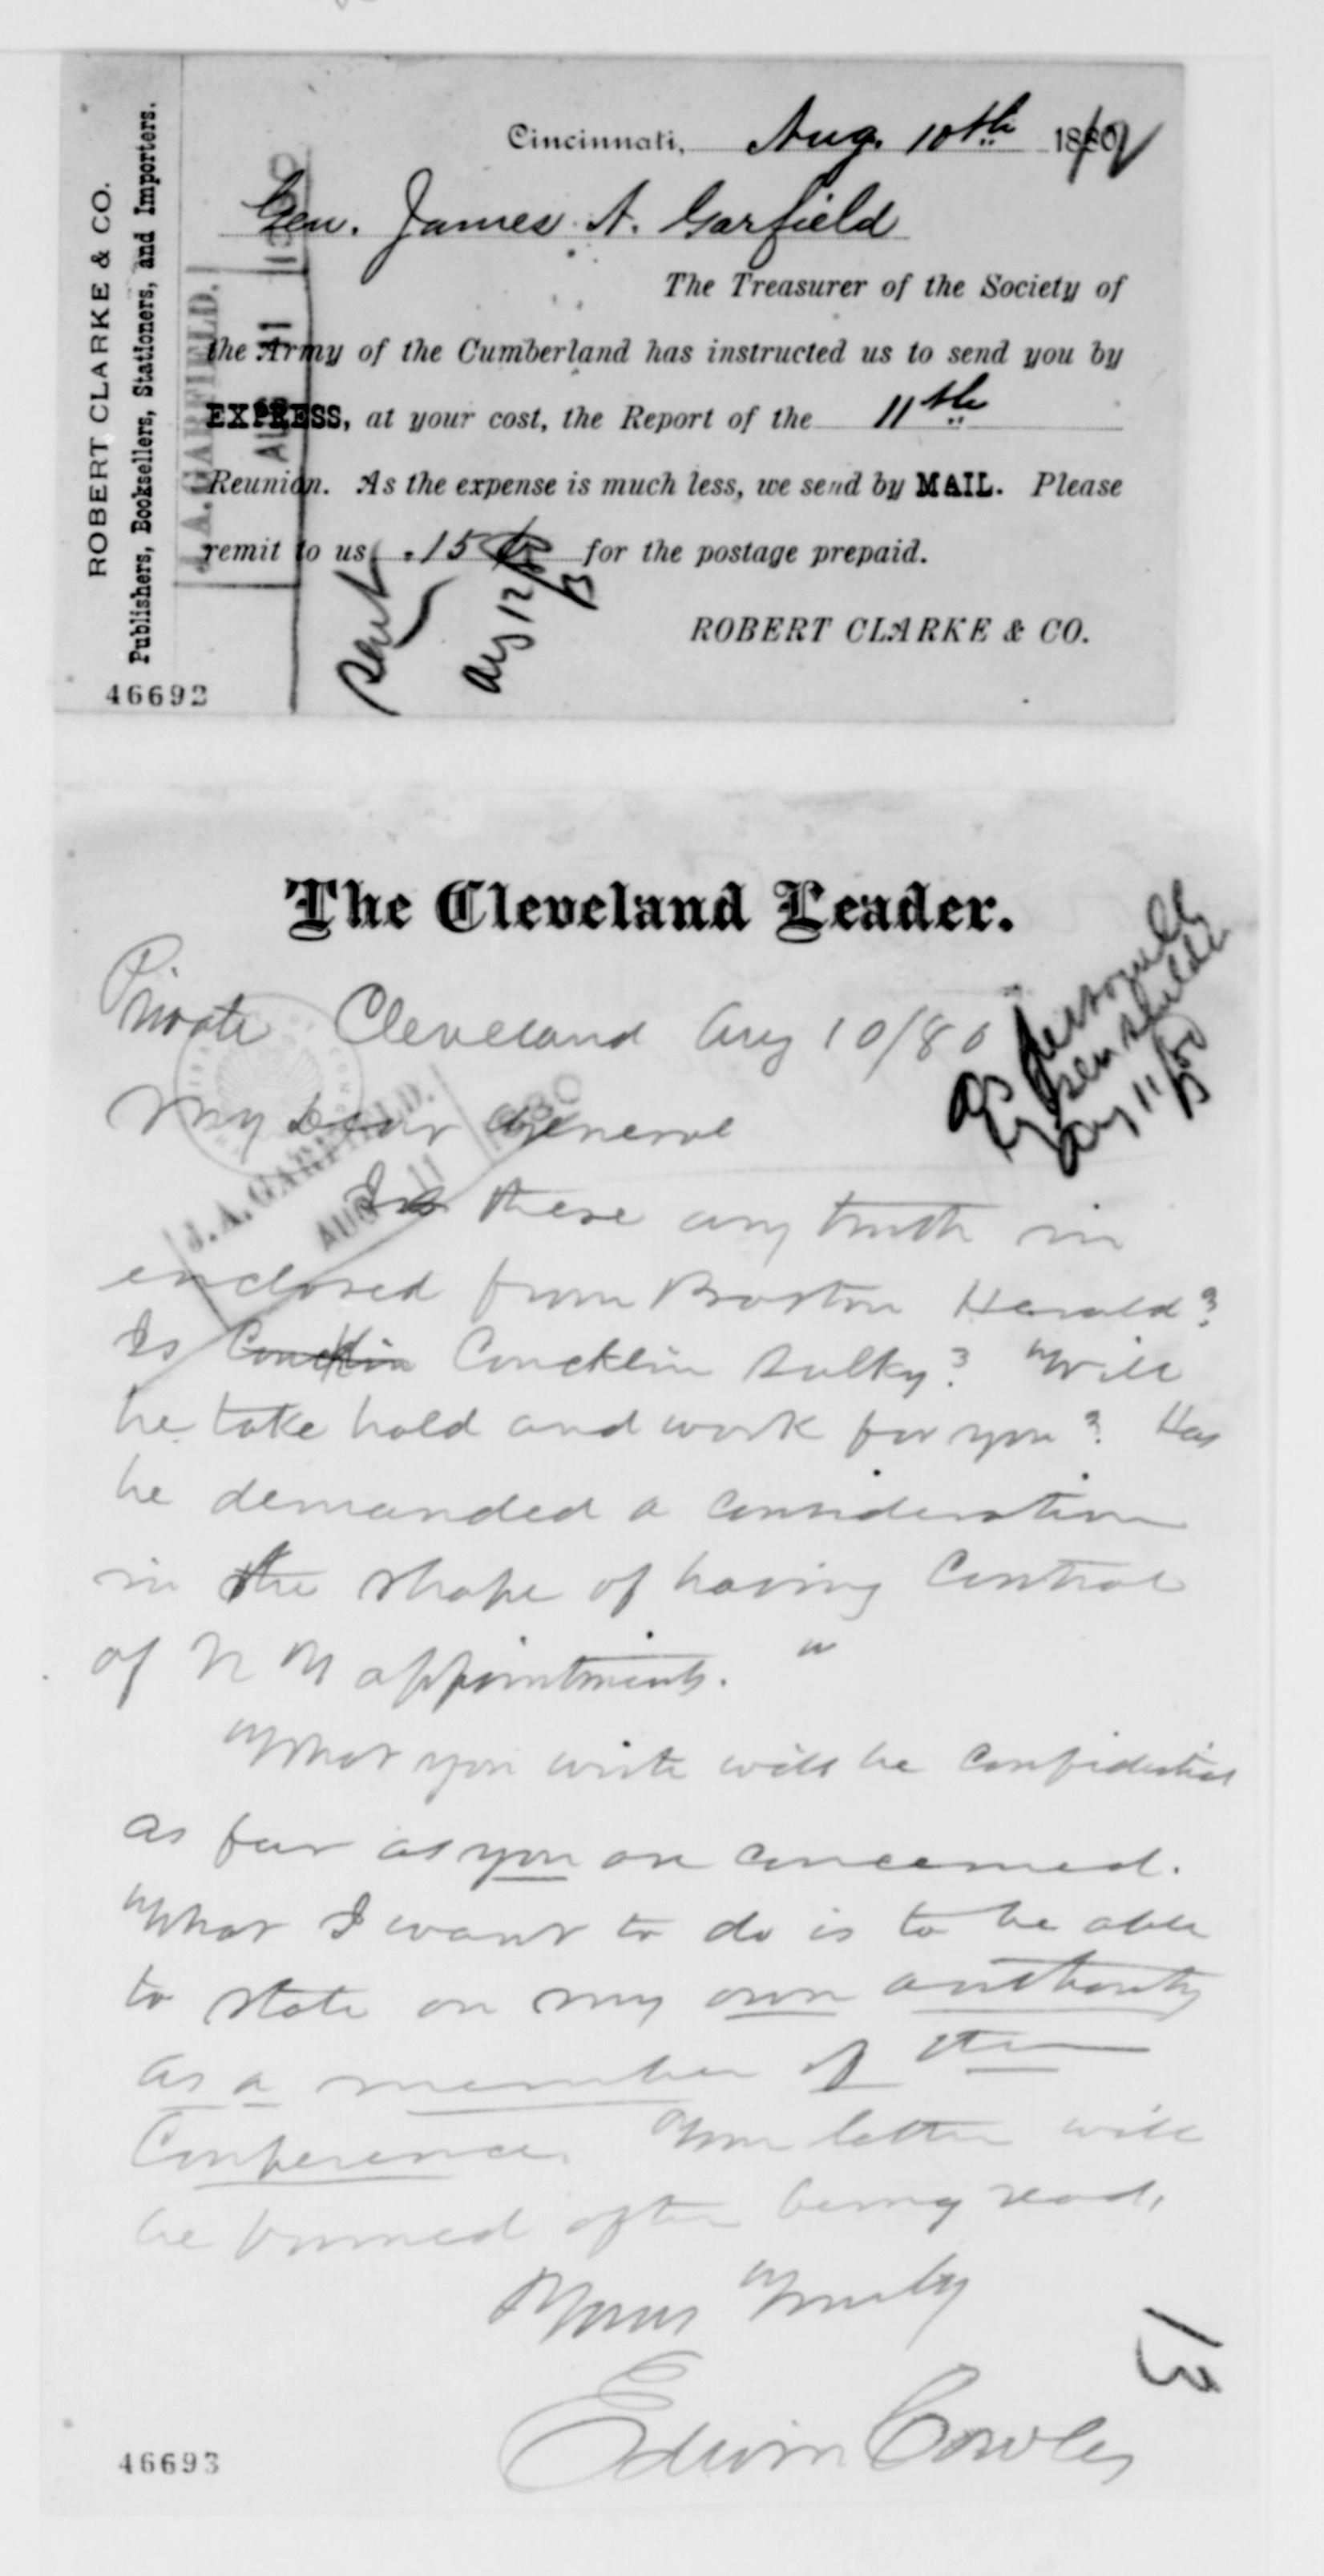 ROBERT CLARKE & CO.
Publishers, Booksellers, Stationers, and Importers.
Cincinnati, Aug. 10th 1880
Gen. James A. Garfield
The Treasurer of the Society of
the Army of the Cumberland has instructed us to send you by
EXPRESS, at your cost, the Report of the 11th
Reunion. As the expense is much less, we send by MAIL. Please
remit to us .15 for the postage prepaid.
ROBERT CLARKE & CO.
J. A. GARFIELD.
AUG 11 1880
Sent
Aug 12/80
46692
The Cleveland Leader.
Private Cleveland Aug 10/80
My Dear General
J. A. GARFIELD.
AUG 11 1880
personally
Aug 11/80
Is there any truth in
enclosed from Boston Herald?
Is Concklin Concklin sulky? Will
he take hold and work for you? Has
he demanded a consideration
in the shape of having control
of N Y appointments. "
What you write will be confidential
as far as you are concerned.
What I want to do is to be able
to state on my own authority
as a member of the
Conference. Your letter will
be burned after being read.
Yours Truly
Edwin Cowles
13
46693